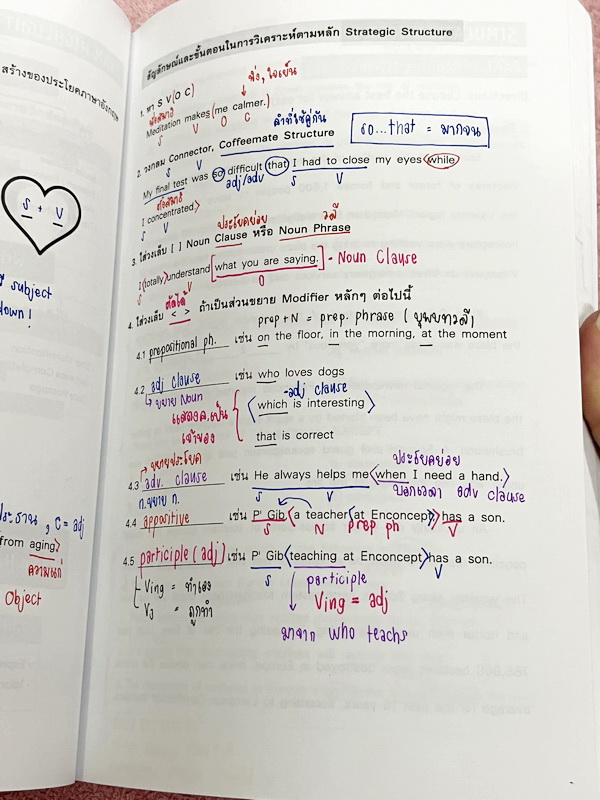 สัญลักษณ์และขั้นตอนในการวิเคราะห์ตามหลัก Strategic Structure
สร้างของประโยคภาษาอังกฤษ
1. หา S V (O C)
Meditation makes (me calmer.)
S V O C
คำที่ใช้คู่กัน
2. วงกลม Connector, Coffeemate Structure
so...that = มากจน
S V
My final test was so difficult that I had to close my eyes while
adj/adv S V
I concentrated.>
S V
ประโยคย่อย วลี
3. ใส่วงเล็บ [ ] Noun Clause หรือ Noun Phrase
I (totally) understand [what you are saying.] - Noun Clause
S V O
ตัดได้
4. ใส่วงเล็บ < > ถ้าเป็นส่วนขยาย Modifier หลักๆ ต่อไปนี้
prep+N = prep. phrase (บุพบทวลี)
4.1 prepositional ph. เช่น on the floor, in the morning, at the moment
4.2 adj clause เช่น who loves dogs
ขยาย Noun
- adj clause
<which is interesting>
แสดงความเป็น
เจ้าของ
that is correct
ขยายประโยค
ประโยคย่อย
4.3 adv. clause เช่น He always helps me <when I need a hand.>
n.ขยาย n. S V บอกเวลา adv clause
4.4 appositive เช่น P' Gib <a teacher <at Enconcept>> has a son.
S N prep ph V
4.5 participle (adj) เช่น P' Gib <teaching at Enconcept> has a son.
S V
Ving = ทำเอง
V3 = ถูกทำ
participle
Ving = adj
มาจาก who teachs
S + V
subject
down!
, C = adj
from aging>
ความแก่
Object